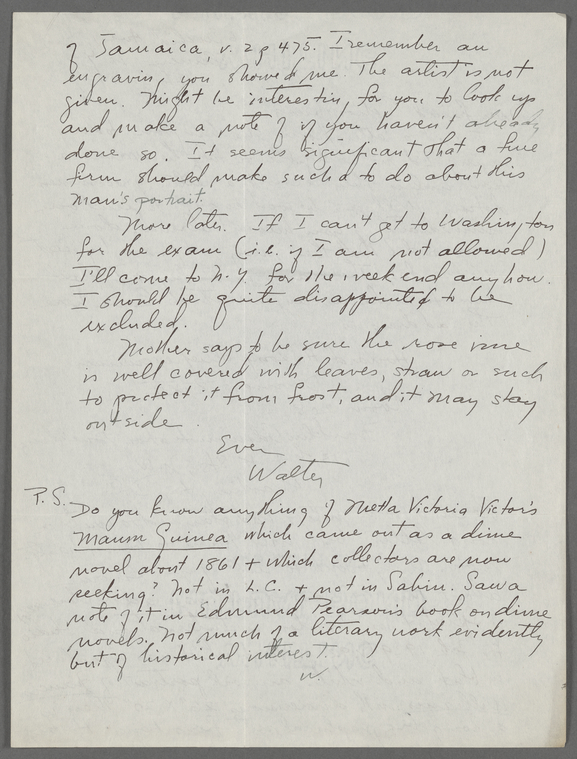 of Jamaica, v. 2 p 475. I remember an
engraving you showed me. The artist is not
given. Might be interesting for you to look up
and make a note of if you haven't already
done so. It seems significant that a fine
firm should make such a to do about this
man's portrait.
More later. If I can't get to Washington
for the exam (i.e. if I am not allowed)
I'll come to N.Y. for the week end anyhow.
I should be quite disappointed to be
excluded.
Mother says to be sure the rose vine
is well covered with leaves, straw or such
to protect it from frost, and it may stay
outside.
Ever
Walter
P.S. Do you know anything of Metta Victoria Victor's
Maum Guinea which came out as a dime
novel about 1861 + which collectors are now
seeking? Not in L.C. + not in Sabin. Saw a
note of it in Edmund Pearson's book on dime
novels. Not much of a literary work evidently
but of historical interest.
W.